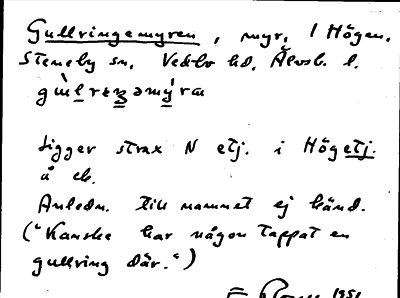 Gullringemyren, myr, 1 Högen,
Steneby sn, Vedbo hd, Älvsb. l.
Ligger strax N etj. i Högetj.
å ek.
Anledn. till namnet ej känd.
("Kanske har någon tappat en
gullring där.")
1951